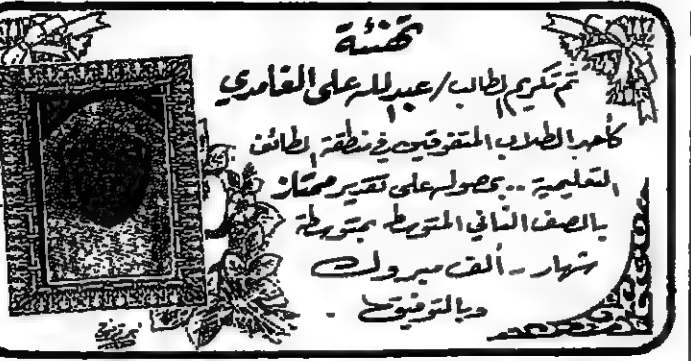 تهنئة
تم تكريم الطالب / عبدالله علي الغامدي
كأحد الطلاب المتفوقين في منطقة الطائف
التعليمية .. بحصوله على تقدير ممتاز
بالصف الثاني المتوسط بمتوسطة
شهار .. ألف مبروك
وبالتوفيق .